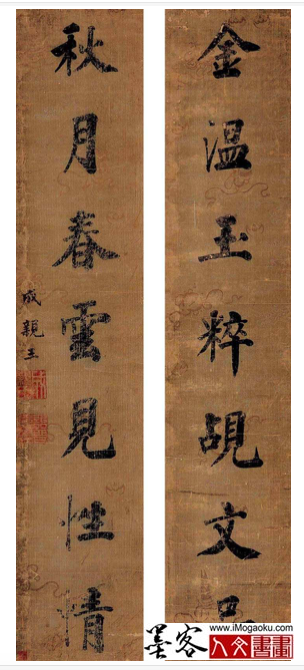 金温玉粹覘文
秋月春雲見性情
成親王
www.iMogaoku.com
墨客 人文書畫